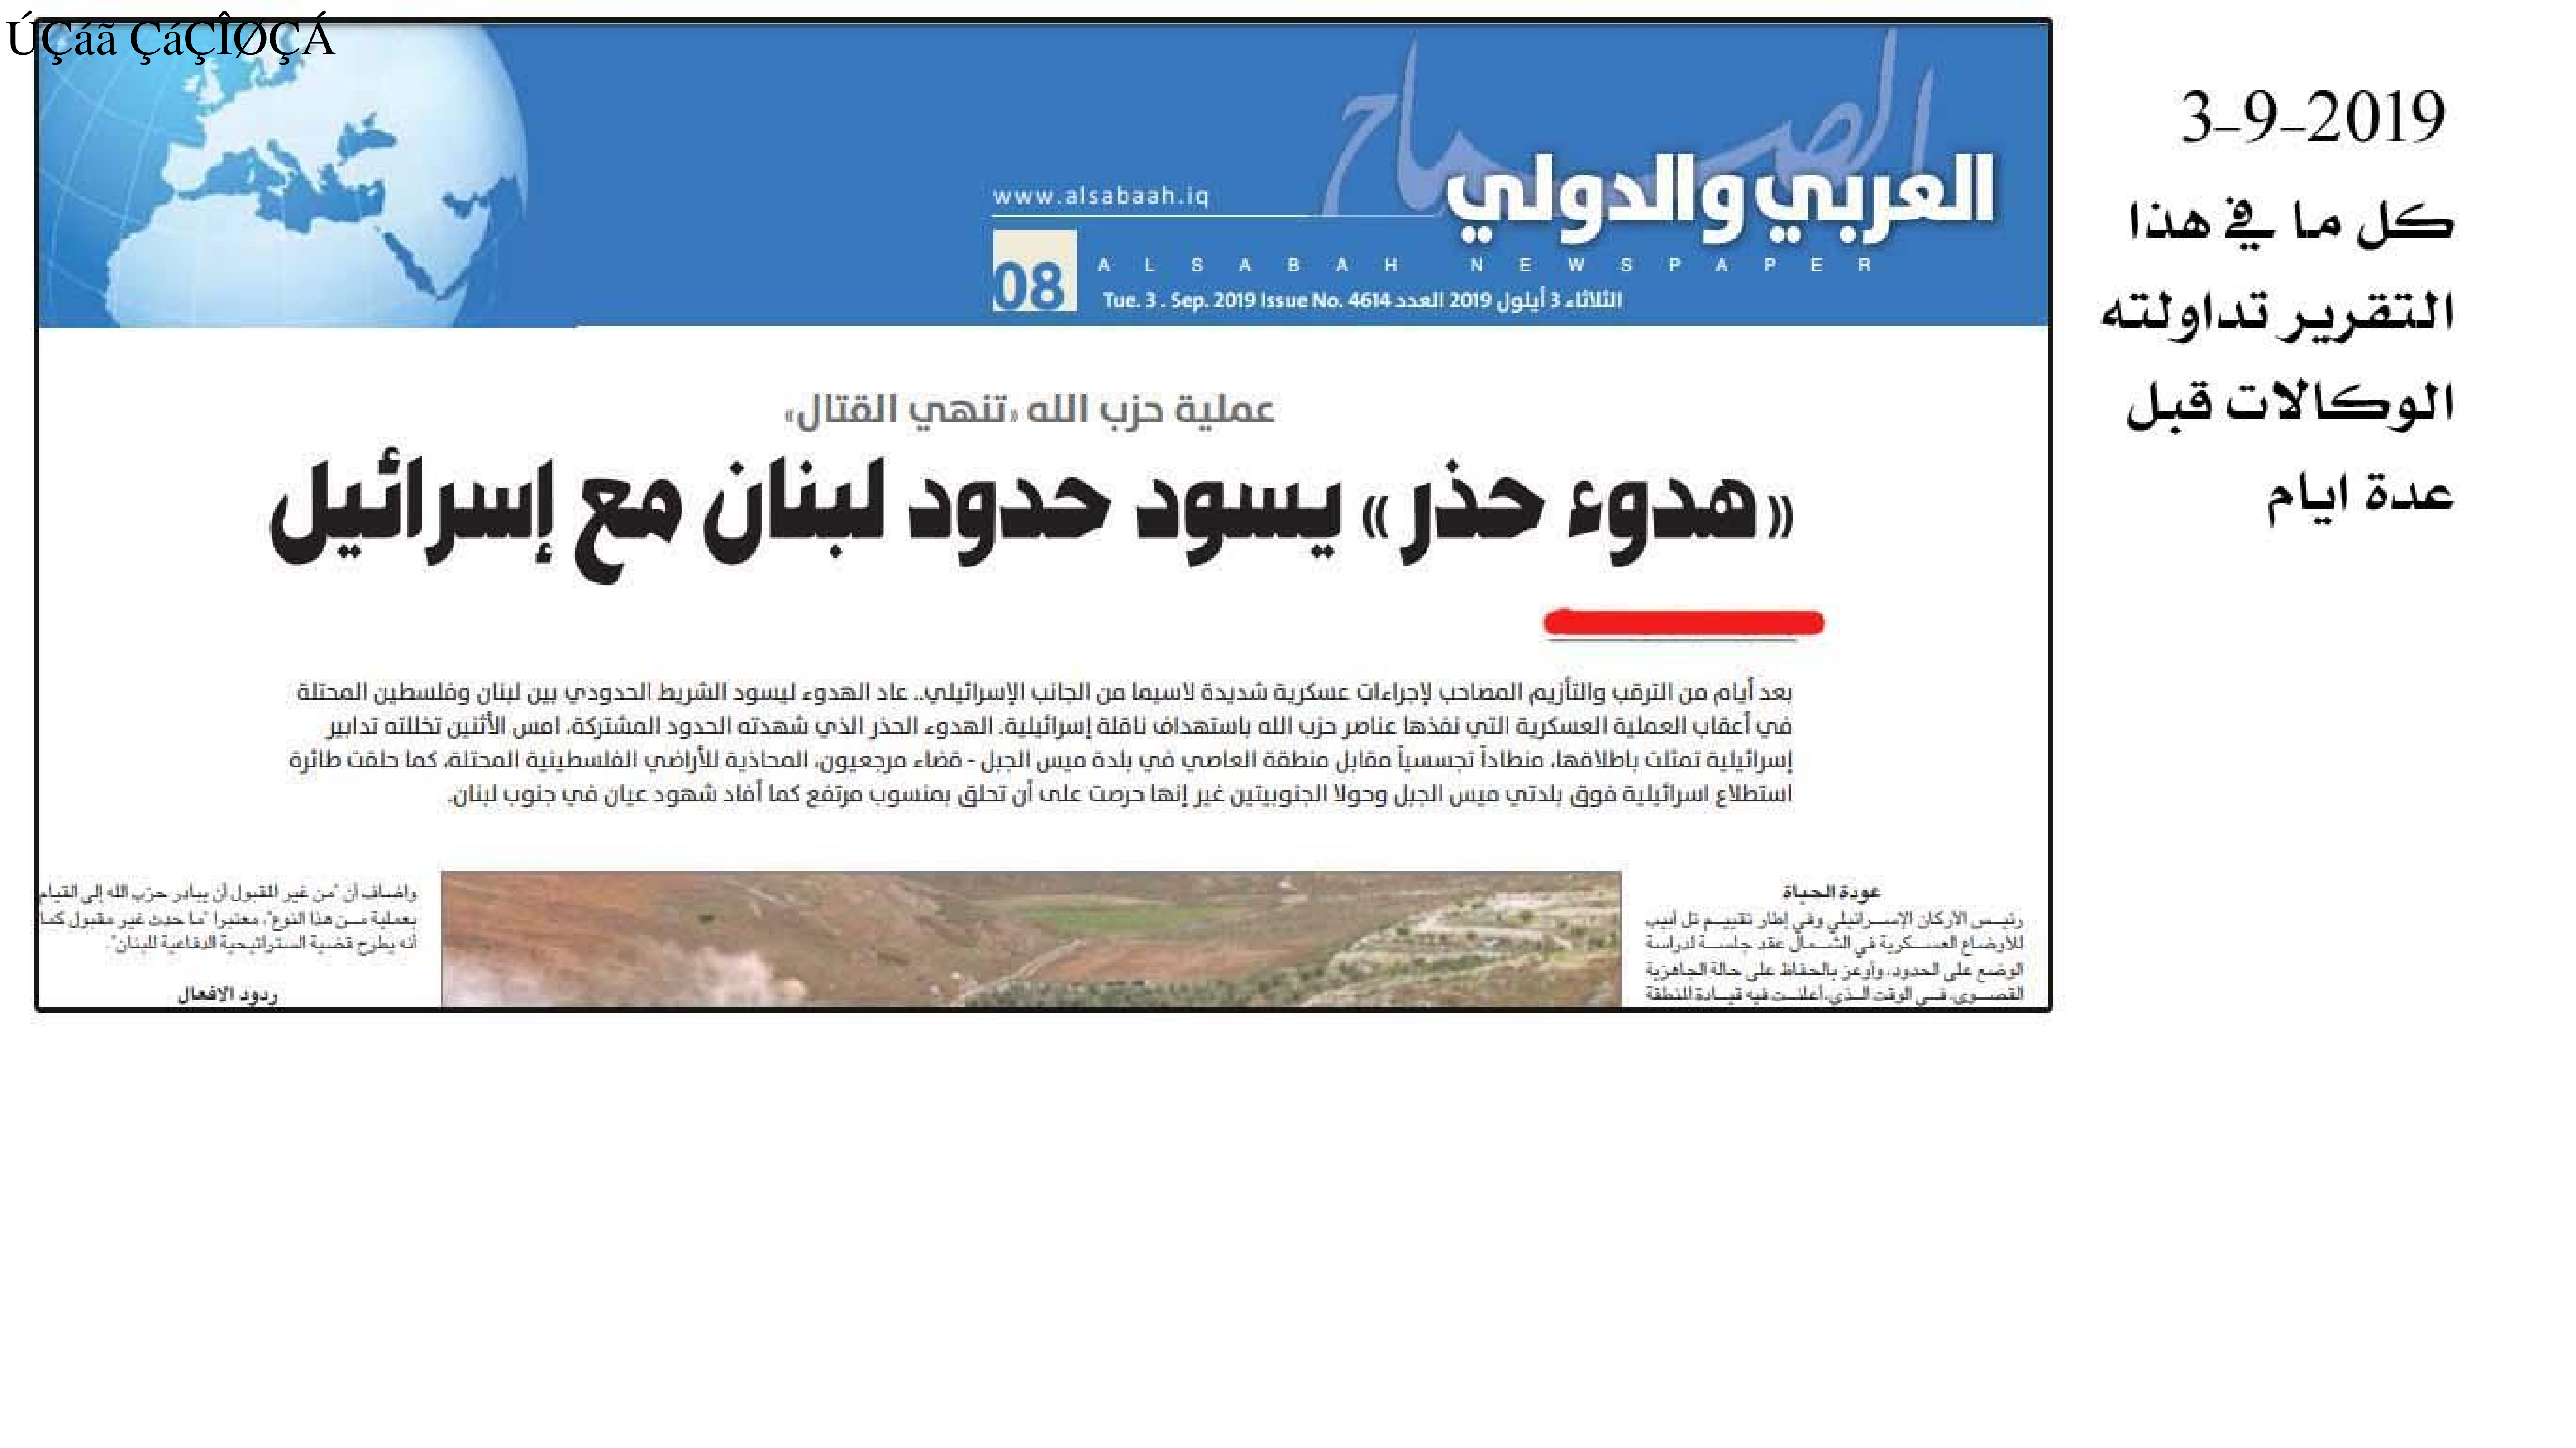 ÚÇáã ÇáÇÎØÇÁ
3-9-2019
كل ما في هذا
التقرير تداولته
الوكالات قبل
عدة ايام
الصباح
العربي والدولي
www.alsabaah.iq
08
ALSABAH NEWSPAPER
Tue. 3 . Sep. 2019 Issue No. 4614 الثلاثاء 3 أيلول 2019 العدد
عملية حزب الله «تنهي القتال»
«هدوء حذر» يسود حدود لبنان مع إسرائيل
بعد أيام من الترقب والتأزيم المصاحب لإجراءات عسكرية شديدة لاسيما من الجانب الإسرائيلي.. عاد الهدوء ليسود الشريط الحدودي بين لبنان وفلسطين المحتلة
في أعقاب العملية العسكرية التي نفذها عناصر حزب الله باستهداف ناقلة إسرائيلية. الهدوء الحذر الذي شهدته الحدود المشتركة، امس الأثنين تخللته تدابير
إسرائيلية تمثلت باطلاقها، منطاداً تجسسياً مقابل منطقة العاصي في بلدة ميس الجبل - قضاء مرجعيون، المحاذية للأراضي الفلسطينية المحتلة، كما حلقت طائرة
استطلاع اسرائيلية فوق بلدتي ميس الجبل وحولا الجنوبيتين غير إنها حرصت على أن تحلق بمنسوب مرتفع كما أفاد شهود عيان في جنوب لبنان.
عودة الحياة
رئيس الأركان الإسرائيلي وفي إطار تقييم تل أبيب
للأوضاع العسكرية في الشمال عقد جلسة لدراسة
الوضع على الحدود، وأوعز بالحفاظ على حالة الجاهزية
القصوى، في الوقت الذي، أعلنت فيه قيادة المنطقة
واضاف أن "من غير المقبول أن يبادر حزب الله إلى القيام
بعملية من هذا النوع"، معتبرا "ما حدث غير مقبول كما
أنه يطرح قضية الستراتيجية الدفاعية للبنان".
ردود الافعال